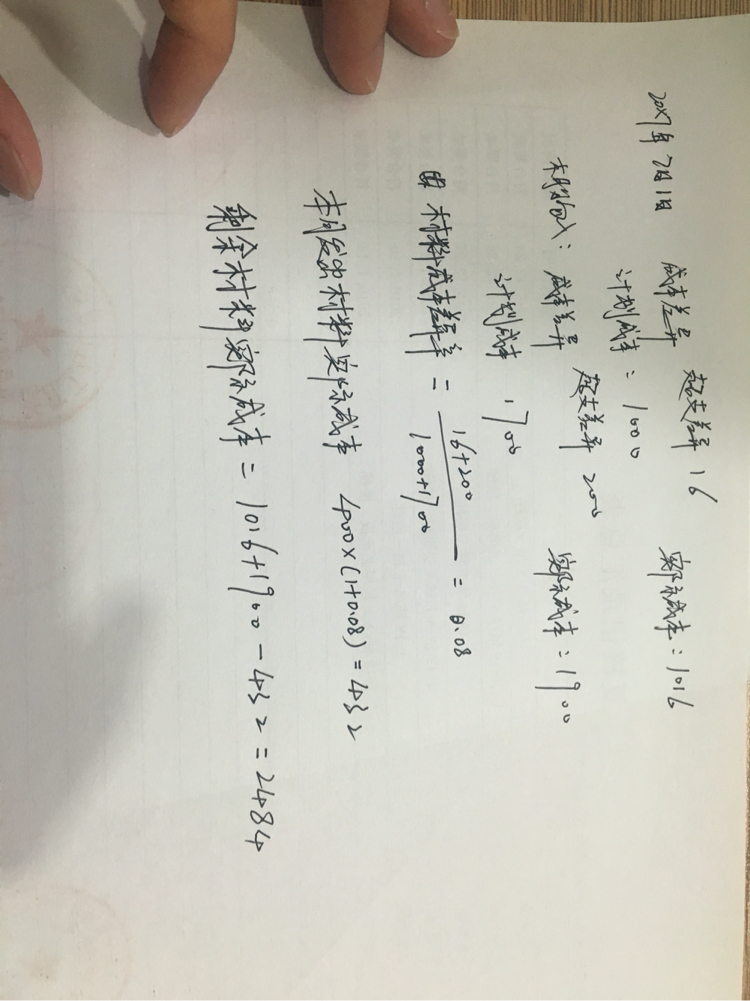 20X7年7月1日 成本差异 超支差异 16 实际成本：1016
计划成本：1000
本月购入： 成本差异 超支差异 200 实际成本：1900
计划成本 1700
由 材料成本差异率 = 16+200 / 1000+1700 = 0.08
本月发出材料实际成本 400×(1+0.08)=432
剩余材料实际成本 = 1016+1900-432=2484